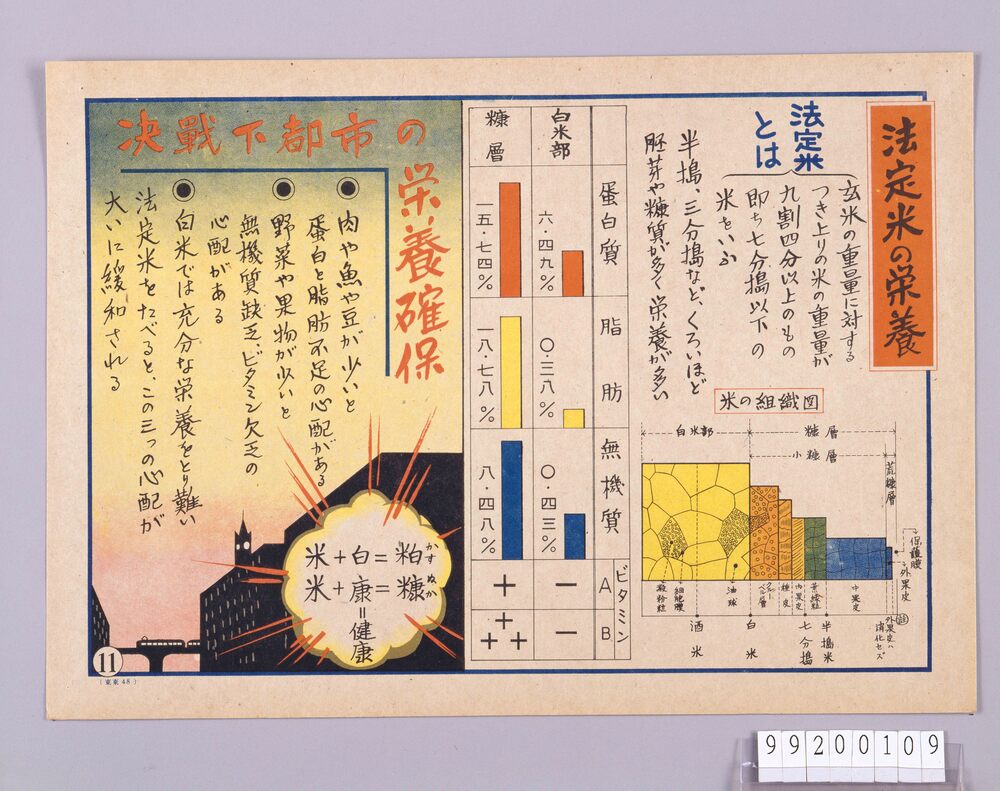 法定米の栄養
法定米とは
玄米の重量に対する
つき上りの米の重量が
九割四分以上のもの
即ち七分搗以下の
米をいふ
半搗、三分搗など、くろいほど
胚芽や糠質が多く栄養が多い
米の組織図
白米部
糠層
小糠層
荒糠層
保護膜
外果皮
澱粉粒
細胞膜
油球
種皮
内果皮
葉緑粒
中果皮
註
外果皮ハ
消化セズ
酒米
白米
七分搗
半搗米
蛋白質
脂肪
無機質
ビタミン
A
B
白米部
六・四九%
〇・三八%
〇・四三%
−
−
糠層
一五・七四%
一八・七八%
八・四八%
+
+++
決戰下都市の
栄養確保
肉や魚や豆が少いと
蛋白と脂肪不足の心配がある
野菜や果物が少いと
無機質缺乏、ビタミン欠乏の
心配がある
白米では充分な栄養をとり難い
法定米をたべると、この三つの心配が
大いに緩和される
米+白=粕
かす
米+康=糠
ぬか
=健康
11
(東東48)
99200109